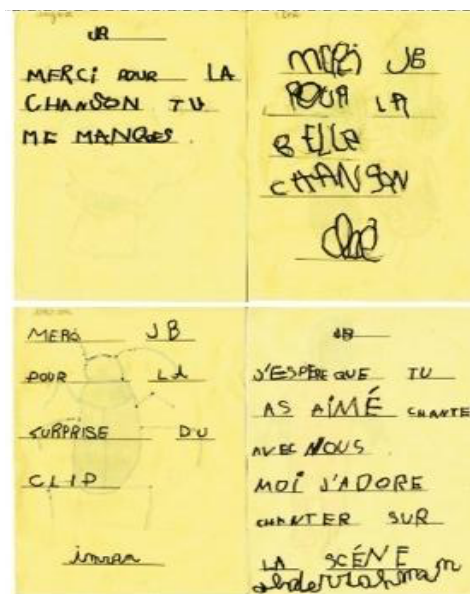 JB
MERCi POUR LA
CHANSON TU
ME MANQUES.
MERCi JB
POUR LA
BELLE
CHANSON
MERCi JB
POUR LA
SURPRISE DU
CLIP
imran
JB
J'ESPÈRE QUE TU
AS AiMÉ CHANTER
AVEC NOUS
MOi J'ADORE
CHANTER SUR
LA SCÉNE
abderrahman